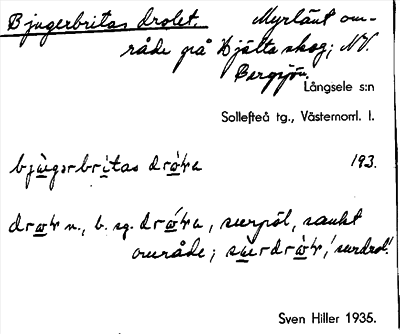 Bjugerbritas drolet. Myrlänt om-
råde på Hjälta skog; NV.
Bergsjön.
Långsele s:n
Sollefteå tg., Västernorrl. l.
bjùgərbritas 193.
n., b. sg. surpöl, sankt
område; 'surdrol'.
Sven Hiller 1935.